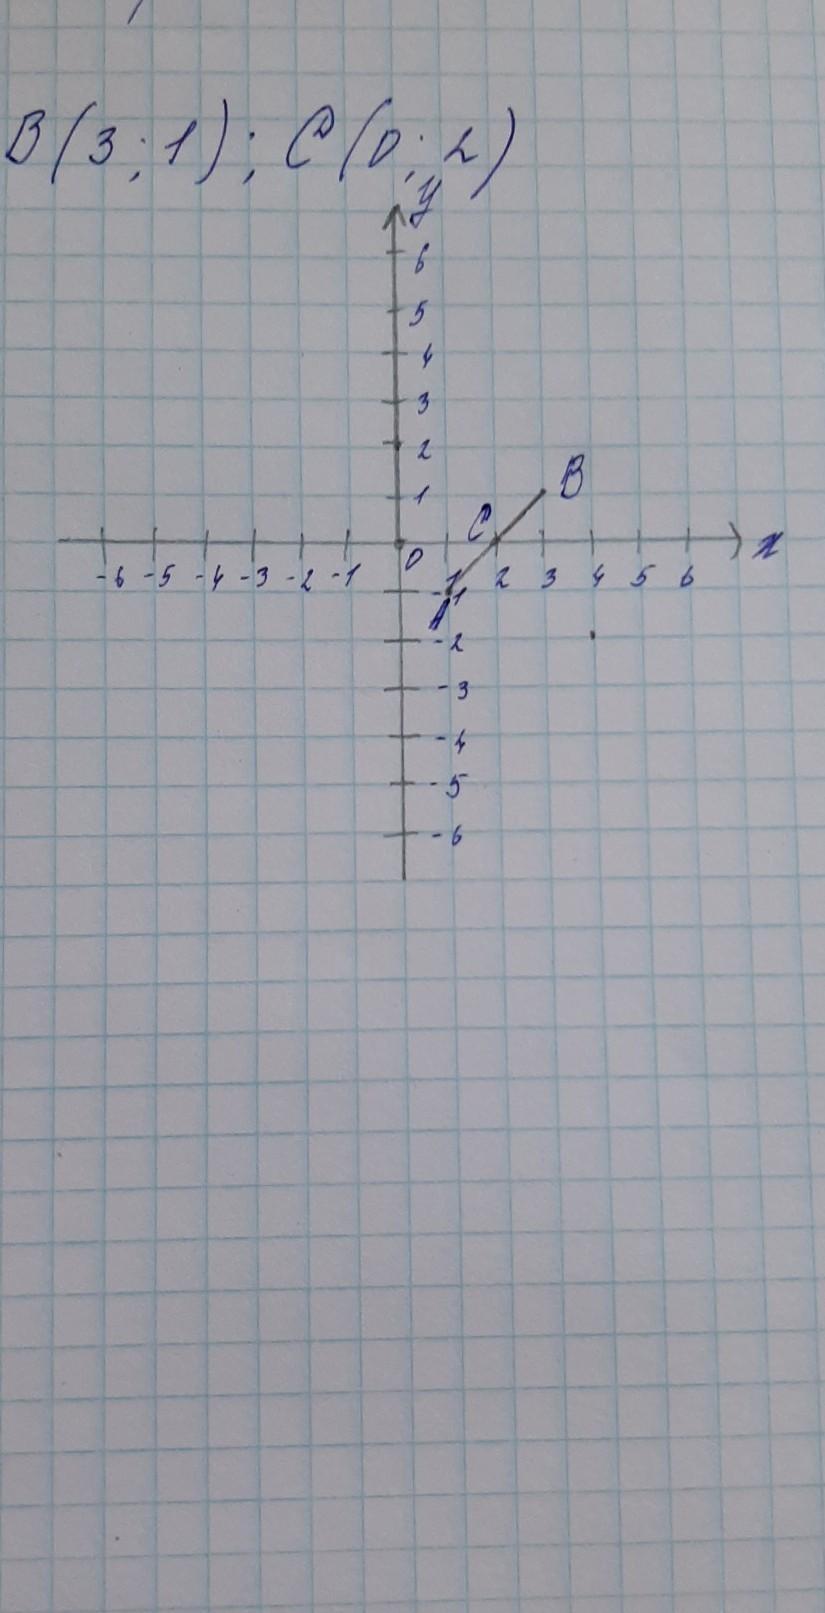 B(3;1); C(0;2)
y
6
5
4
3
2
1
B
C
x
0
-6 -5 -4 -3 -2 -1 1 2 3 4 5 6
-1
A
-2
-3
-4
-5
-6